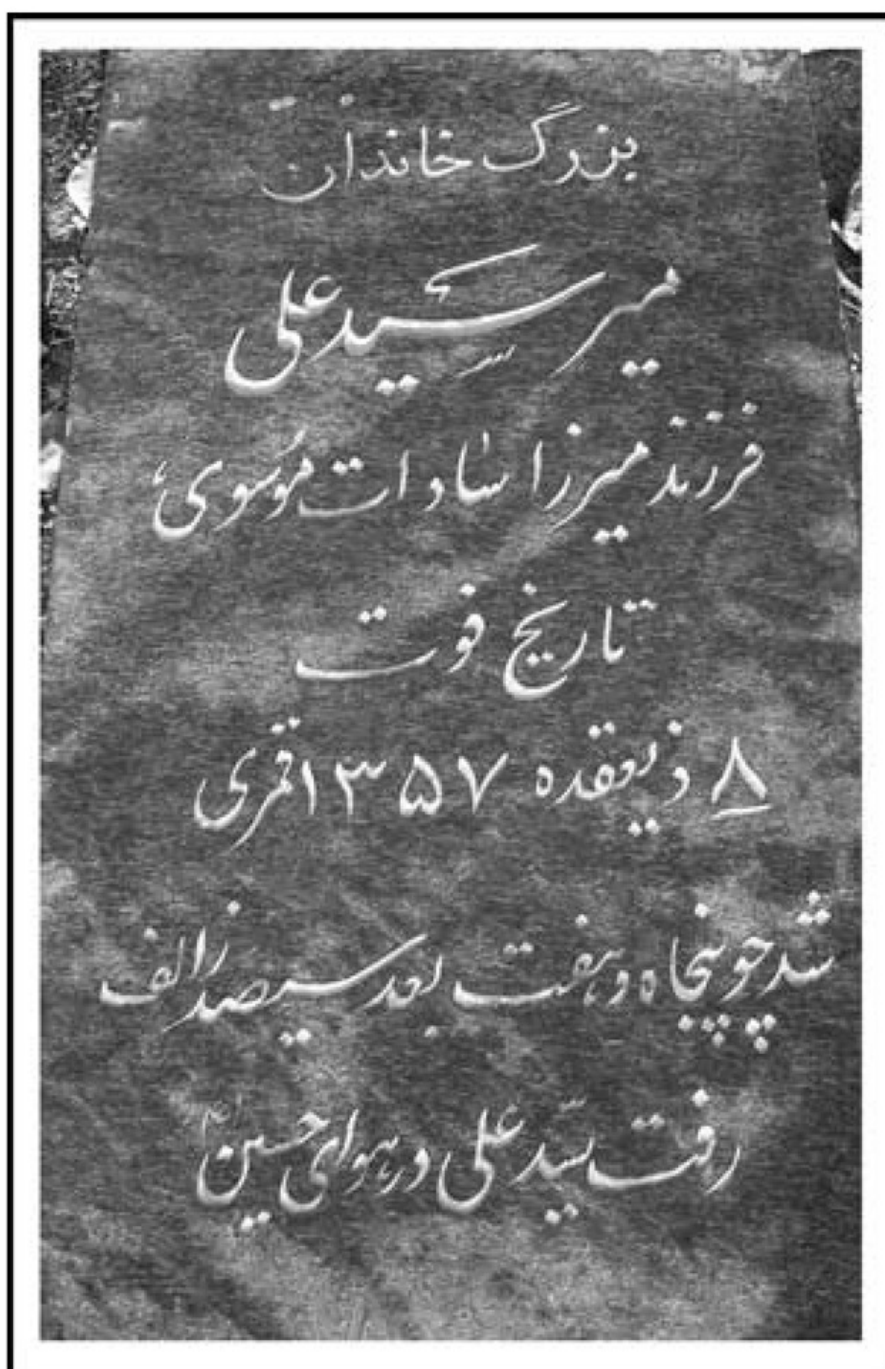 بزرگ خاندان
میر سید علی
فرزند میرزا سادات موسوی
تاریخ فوت
۸ ذیعقده ۱۳۵۷ قمری
شد چو پنجاه و هفت بعد سیصد زالف
رفت سیّد علی در هوای حسین